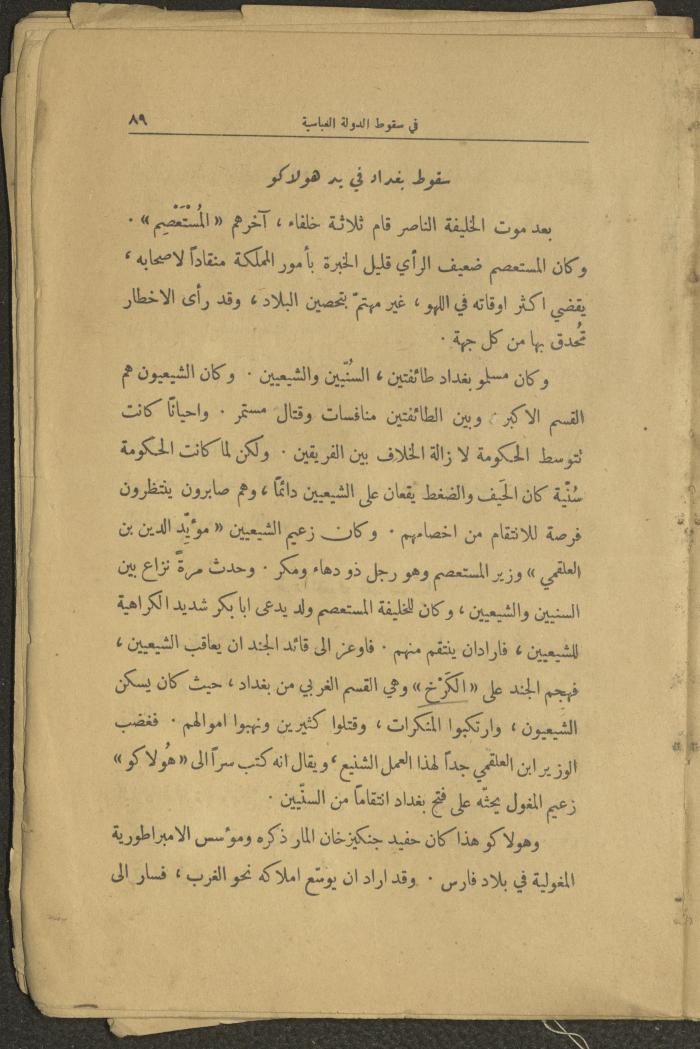 في سقوط الدولة العباسية ٨٩
سقوط بغداد في يد هولاكو
بعد موت الخليفة الناصر قام ثلاثة خلفاء ، آخرهم « المُسْتَعْصِم » .
وكان المستعصم ضعيف الرأي قليل الخبرة بأمور المملكة منقاداً لاصحابه ،
يقضي اكثر اوقاته في اللهو ، غير مهتمّ بتحصين البلاد ، وقد رأى الاخطار
تُحدق بها من كل جهة .
وكان مسلمو بغداد طائفتين ، السُنّيين والشيعيين . وكان الشيعيون هم
القسم الاكبر ، وبين الطائفتين منافسات وقتال مستمر . واحياناً كانت
تتوسط الحكومة لازالة الخلاف بين الفريقين . ولكن لما كانت الحكومة
سُنّية كان الحَيف والضغط يقعان على الشيعيين دائماً ، وهم صابرون ينتظرون
فرصة للانتقام من اخصامهم . وكان زعيم الشيعيين « مؤيِّد الدين بن
العلقمي » وزير المستعصم وهو رجل ذو دهاء ومكر . وحدث مرةً نزاع بين
السنيين والشيعيين ، وكان للخليفة المستعصم ولد يدعى ابا بكر شديد الكراهية
للشيعيين ، فاراد ان ينتقم منهم . فاوعز الى قائد الجند ان يعاقب الشيعيين ،
فهجم الجند على « الكَرْخ » وهي القسم الغربي من بغداد ، حيث كان يسكن
الشيعيون ، وارتكبوا المنكرات ، وقتلوا كثيرين ونهبوا اموالهم . فغضب
الوزير ابن العلقمي جداً لهذا العمل الشنيع ، ويقال انه كتب سراً الى « هُولاكو »
زعيم المغول يحثّه على فتح بغداد انتقاماً من السنّيين .
وهولاكو هذا كان حفيد جنكيزخان المار ذكره ومؤسس الامبراطورية
المغولية في بلاد فارس . وقد اراد ان يوسّع املاكه نحو الغرب ، فسار الى